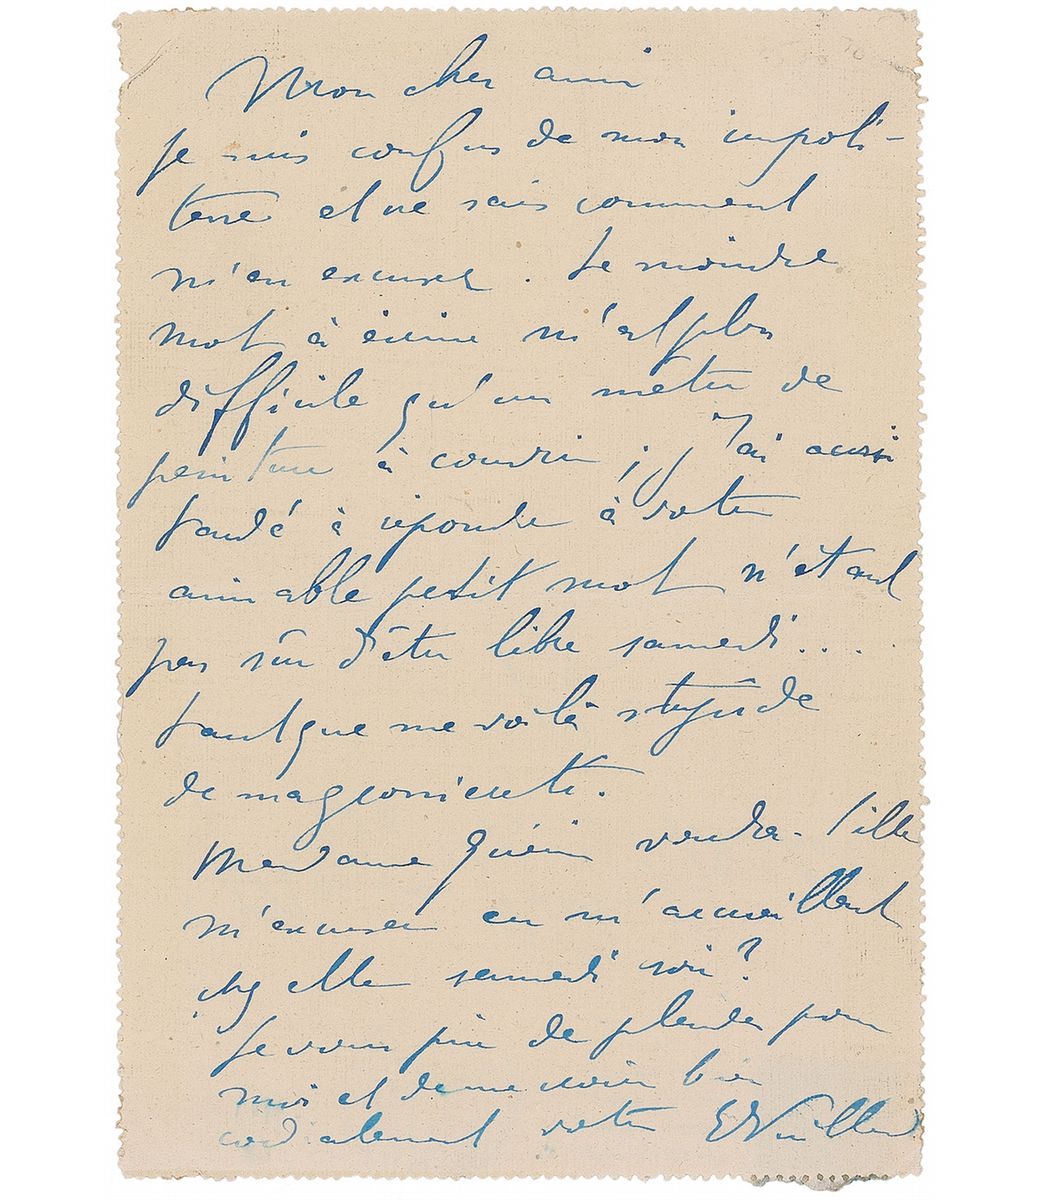 Mon cher ami
Je suis confus de mon impoli-
tesse et ne sais comment
m'en excuser. Le moindre
mot à écrire m'est plus
difficile qu'un mètre de
peinture à couvrir ; J'ai aussi
tardé à répondre à votre
aimable petit mot n'étant
pas sûr d'être libre samedi....
tant que me voilà stupide
de
Madame Guérin voudra-t'elle
m'excuser en m'accueillant
chez elle samedi soir?
Je vous prie de plaider pour
moi et de me croire bien
cordialement votre EVuillard